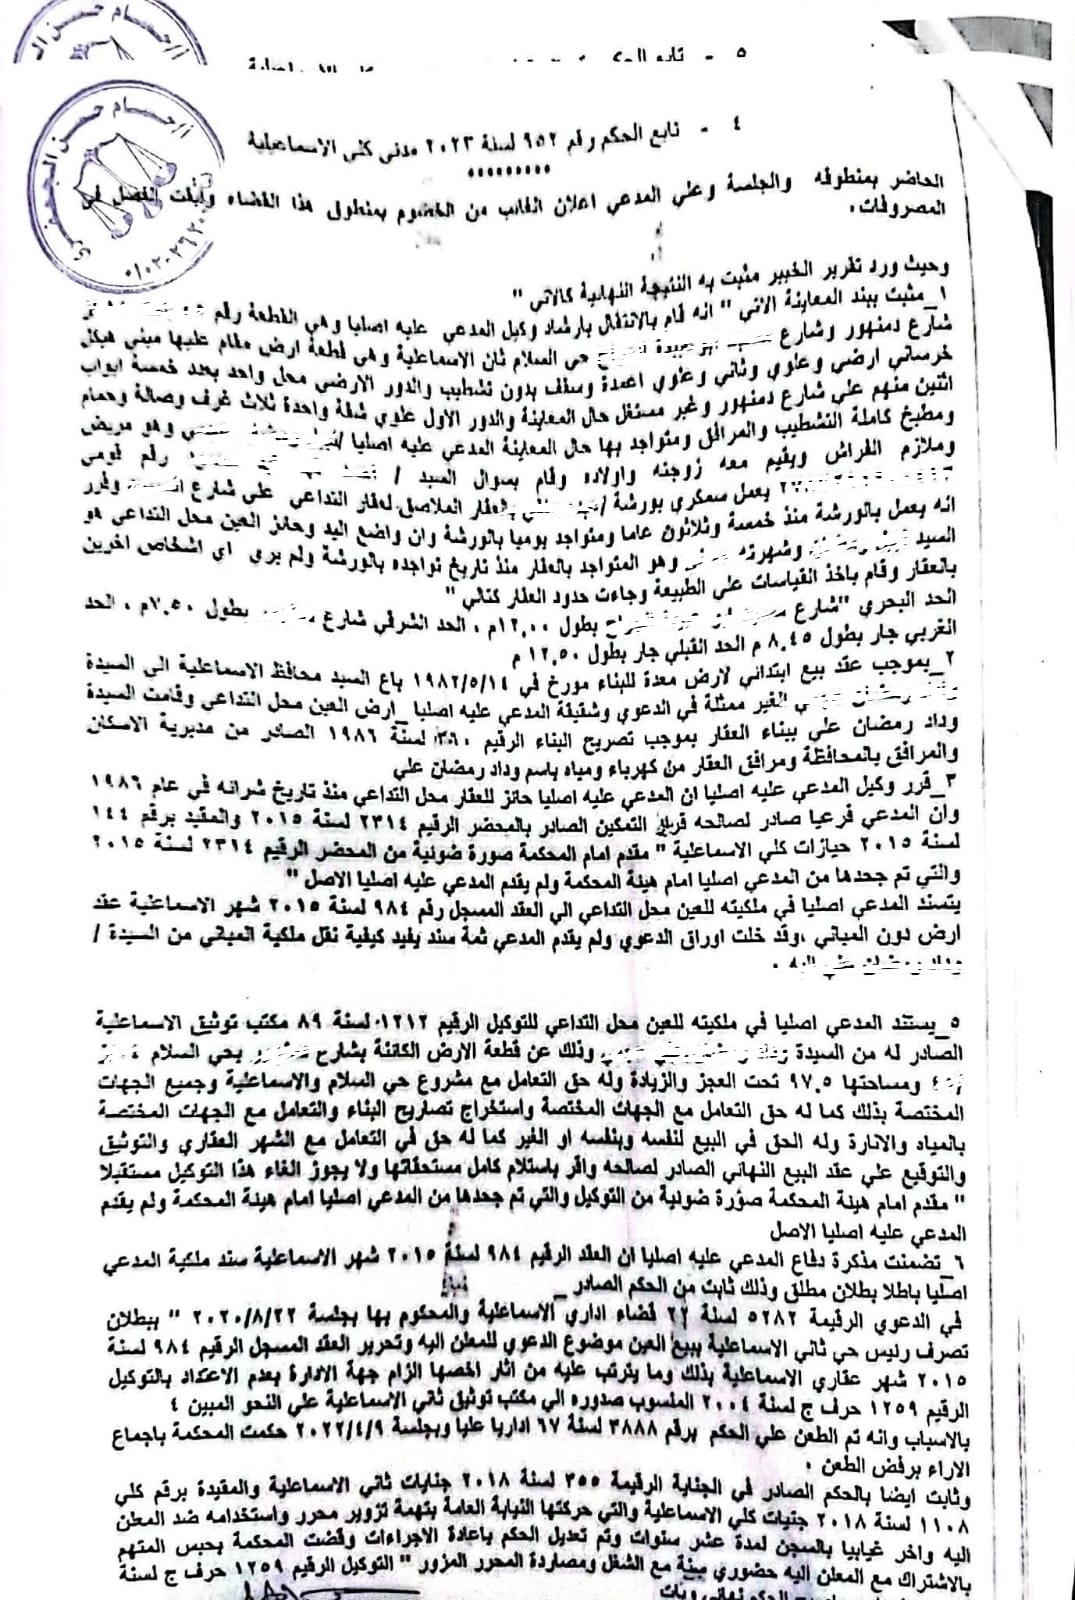 أ/حسام حسن ال
٥ - تابع الحكم
أ/حسام حسن الجعفري
٤ - تابع الحكم رقم ٩٥٢ لسنة ٢٠٢٣ مدني كلي الاسماعيلية
الحاضر بمنطوقه والجلسة وعلي المدعي اعلان الغائب من الخصوم بمنطوق هذا القضاء وابقت الفصل في
المصروفات.
وحيث ورد تقرير الخبير مثبت به النتيجة النهائية كالاتي "
١_مثبت ببند المعاينة الاتي " انه قام بالانتقال بارشاد وكيل المدعي عليه اصليا وهي القطعة رقم
شارع دمنهور وشارع حي السلام ثان الاسماعلية وهي قطعة ارض مقام عليها مبني هيكل
خرساني ارضي وعلوي وثاني وعلوي اعمدة وسقف بدون تشطيب والدور الارضي محل واحد بعدد خمسة ابواب
اثنين منهم علي شارع دمنهور وغير مستغل حال المعاينة والدور الاول علوي شقة واحدة ثلاث غرف وصالة وحمام
ومطبخ كاملة التشطيب والمرافق ومتواجد بها حال المعاينة المدعي عليه اصليا / وهو مريض
وملازم الفراش ويقيم معه زوجته واولاده وقام بسوال السيد / رقم قومي
يعمل سمكري بورشة / بالعقار الملاصق لعقار التداعي علي شارع وقرر
انه يعمل بالورشة منذ خمسة وثلاثون عاما ومتواجد يوميا بالورشة وان واضع اليد وحائز العين محل التداعي هو
السيد وشهرته وهو المتواجد بالعقار منذ تاريخ تواجده بالورشة ولم يري اي اشخاص اخرين
بالعقار وقام باخذ القياسات علي الطبيعة وجاءت حدود العقار كتالي "
الحد البحري "شارع بطول ١٢,٠٠م ، الحد الشرقي شارع بطول ٧,٥٠م ، الحد
الغربي جار بطول ٨,٤٥ م الحد القبلي جار بطول ١٢,٥٠ م
٢_بموجب عقد بيع ابتدائي لارض معدة للبناء مورخ في ١٩٨٢/٥/١٤ باع السيد محافظ الاسماعلية الي السيدة
الغير ممثلة في الدعوي وشقيقة المدعي عليه اصليا_ارض العين محل التداعي وقامت السيدة
وداد رمضان علي ببناء العقار بموجب تصريح البناء الرقيم لسنة ١٩٨٦ الصادر من مديرية الاسكان
والمرافق بالمحافظة ومرافق العقار من كهرباء ومياه باسم وداد رمضان علي
٣_قرر وكيل المدعي عليه اصليا ان المدعي عليه اصليا حائز للعقار محل التداعي منذ تاريخ شرائه في عام ١٩٨٦
وان المدعي فرعيا صادر لصالحه قرار التمكين الصادر بالمحضر الرقيم ٢٣١٤ لسنة ٢٠١٥ والمقيد برقم ١٤٤
لسنة ٢٠١٥ حيازات كلي الاسماعلية " مقدم امام المحكمة صورة ضوئية من المحضر الرقيم ٢٣١٤ لسنة ٢٠١٥
والتي تم جحدها من المدعي اصليا امام هيئة المحكمة ولم يقدم المدعي عليه اصليا الاصل "
يتسند المدعي اصليا في ملكيته للعين محل التداعي الي العقد المسجل رقم ٩٨٤ لسنة ٢٠١٥ شهر الاسماعلية عقد
ارض دون المباني ،وقد خلت اوراق الدعوي ولم يقدم المدعي ثمة سند يفيد كيفية نقل ملكية المباني من السيدة /
وداد رمضان علي اليه .
٥_يستند المدعي اصليا في ملكيته للعين محل التداعي للتوكيل الرقيم ١٢١٢ لسنة ٨٩ مكتب توثيق الاسماعلية
الصادر له من السيدة وذلك عن قطعة الارض الكائنة بشارع بحي السلام
ومساحتها ٩٧,٥ تحت العجز والزيادة وله حق التعامل مع مشروع حي السلام والاسماعلية وجميع الجهات
المختصة بذلك كما له حق التعامل مع الجهات المختصة واستخراج تصاريح البناء والتعامل مع الجهات المختصة
بالمياه والانارة وله الحق في البيع لنفسه وبنفسه او الغير كما له حق في التعامل مع الشهر العقاري والتوثيق
والتوقيع علي عقد البيع النهائي الصادر لصالحه واقر باستلام كامل مستحقاتها ولا يجوز الغاء هذا التوكيل مستقبلا
" مقدم امام هيئة المحكمة صورة ضوئية من التوكيل والتي تم جحدها من المدعي اصليا امام هيئة المحكمة ولم يقدم
المدعي عليه اصليا الاصل
٦_تضمنت مذكرة دفاع المدعي عليه اصليا ان العقد الرقيم ٩٨٤ لسنة ٢٠١٥ شهر الاسماعلية سند ملكية المدعي
اصليا باطلا بطلان مطلق وذلك ثابت من الحكم الصادر_
في الدعوي الرقيمة ٥٢٨٢ لسنة ٢٢ قضاء اداري الاسماعلية والمحكوم بها بجلسة ٢٠٢٠/٨/٢٢ " ببطلان
تصرف رئيس حي ثاني الاسماعلية ببيع العين موضوع الدعوي للمعلن اليه وتحرير العقد المسجل الرقيم ٩٨٤ لسنة
٢٠١٥ شهر عقاري الاسماعلية بذلك وما يترتب عليه من اثار اخصها الزام جهة الادارة بعدم الاعتداد بالتوكيل
الرقيم ١٢٥٩ حرف ج لسنة ٢٠٠٤ المنسوب صدوره الي مكتب توثيق ثاني الاسماعلية علي النحو المبين ٤
بالاسباب وانه تم الطعن علي الحكم برقم ٣٨٨٨ لسنة ٦٧ اداريا عليا وبجلسة ٢٠٢٢/٤/٩ حكمت المحكمة باجماع
الاراء برفض الطعن .
وثابت ايضا بالحكم الصادر في الجناية الرقيمة ٣٥٥ لسنة ٢٠١٨ جنايات ثاني الاسماعلية والمقيدة برقم كلي
١١٠٨ لسنة ٢٠١٨ جنيات كلي الاسماعلية والتي حركتها النيابة العامة بتهمة تزوير محرر واستخدامه ضد المعلن
اليه واخر غيابيا بالسجن لمدة عشر سنوات وتم تعديل الحكم باعادة الاجراءات وقضت المحكمة بحبس المتهم
بالاشتراك مع المعلن اليه حضوري سنة مع الشغل ومصاردة المحرر المزور " التوكيل الرقيم ١٢٥٩ حرف ج لسنة
الحكم نهائي وبات